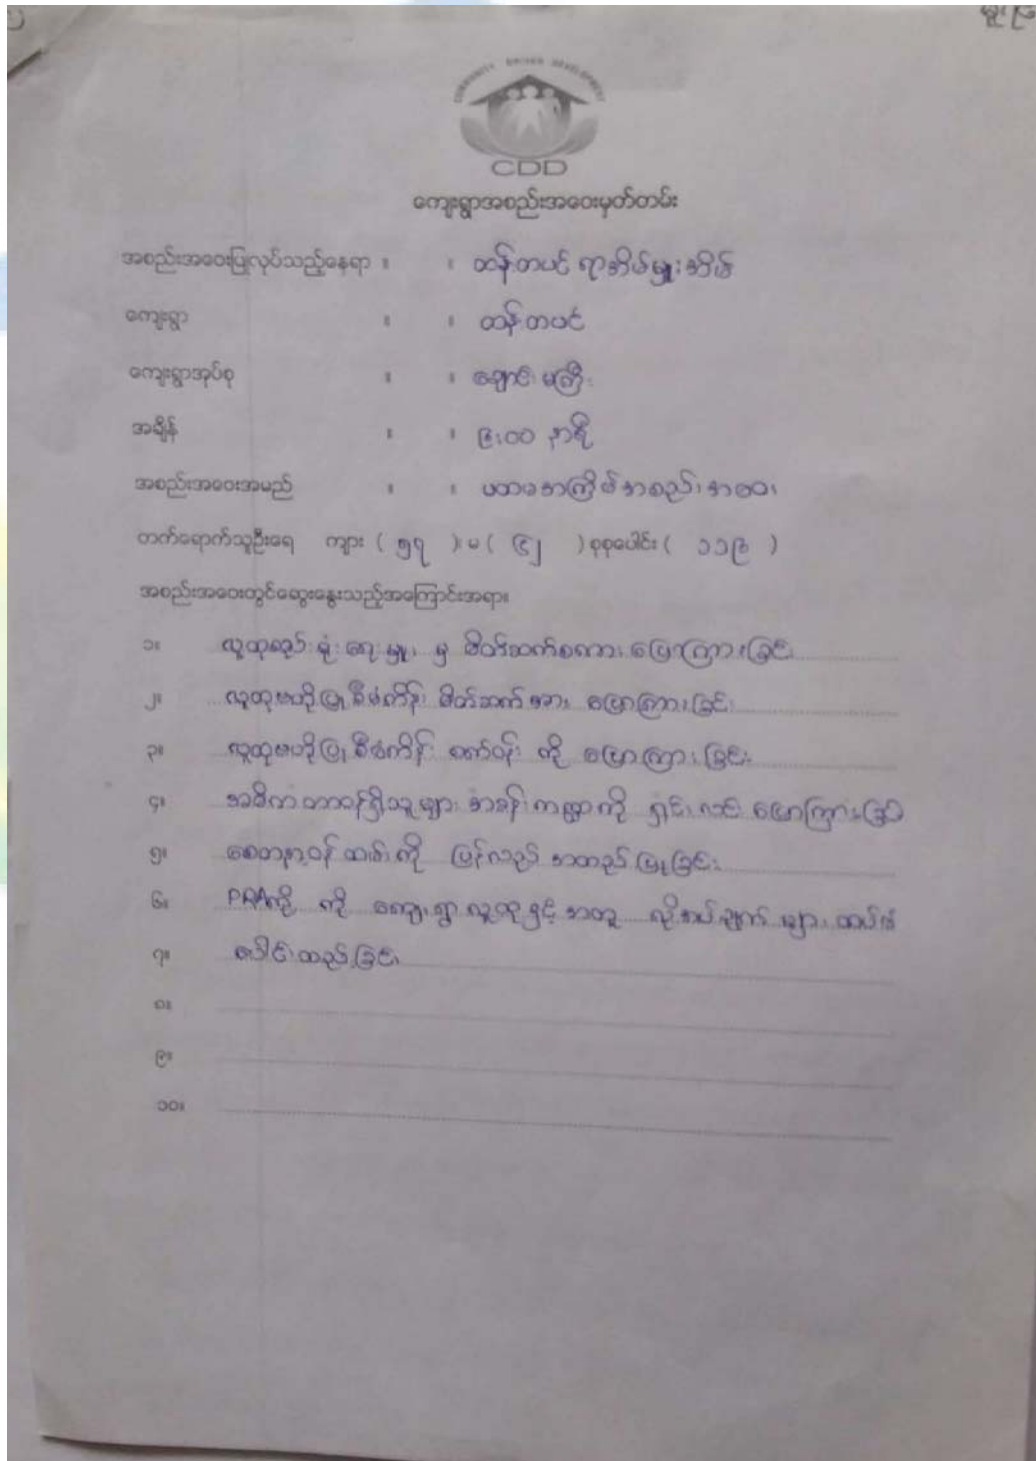 COMMUNITY DRIVEN DEVELOPMENT
CDD
ကျေးရွာအစည်းအဝေးမှတ်တမ်း
အစည်းအဝေးပြုလုပ်သည့်နေရာ ။ ။ ထန်းတပင် ရာအိမ်မှူးအိမ်
ကျေးရွာ ။ ။ ထန်းတပင်
ကျေးရွာအုပ်စု ။ ။ ချောင်းမကြီး
အချိန် ။ ။ ၉:၀၀ နာရီ
အစည်းအဝေးအမည် ။ ။ ပထမအကြိမ်အစည်းအဝေး
တက်ရောက်သူဦးရေ ကျား ( ၅၇ ) ။ မ ( ၆၂ ) စုစုပေါင်း ( ၁၁၉ )
အစည်းအဝေးတွင်ဆွေးနွေးသည့်အကြောင်းအရာ။
၁။ လူထုစည်းရုံးရေးမှူး မှ မိတ်ဆက်စကား ပြောကြားခြင်း
၂။ လူထုဗဟိုပြု စီမံကိန်း မိတ်ဆက်အား ပြောကြားခြင်း
၃။ လူထုဗဟိုပြု စီမံကိန်း စက်ဝန်း ကို ပြောကြားခြင်း
၄။ အဓိက တာဝန်ရှိသူများ အခန်းကဏ္ဍကို ရှင်းလင်း ပြောကြားခြင်း
၅။ စေတနာ့ဝန်ထမ်းကို ပြန်လည် အတည်ပြုခြင်း
၆။ PRA ကို ကျေးရွာလူထုနှင့်အတူ လိုအပ်ချက် များ ထပ်မံ
၇။ ပေါင်းထည့်ခြင်း
၈။
၉။
၁၀။